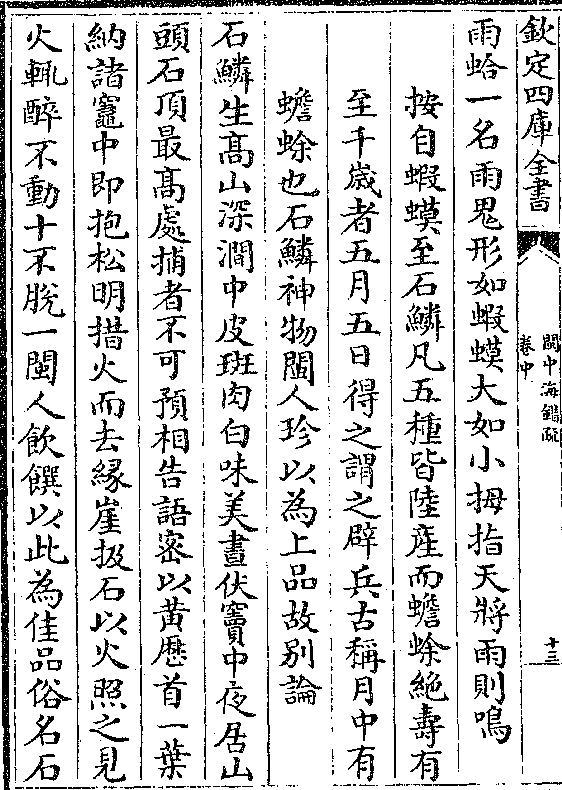 欽定四庫全書
閩中海錯疏
卷中
十三
雨蛤一名雨鬼形如蝦蟆大如小拇指天將雨則鳴
按自蝦蟆至石鱗凡五種皆陸產而蟾蜍絶壽有
至千歲者五月五日得之謂之辟兵古稱月中有
蟾蜍也石鱗神物閩人珍以為上品故别論
石鱗生髙山深澗中皮斑肉白味美晝伏竇中夜居山
頭石頂最髙處捕者不可預相告語密以黄厯首一葉
納諸竈中即抱松明措火而去緣崖扱石以火照之見
火輒醉不動十不脫一閩人飲饌以此為佳品俗名石